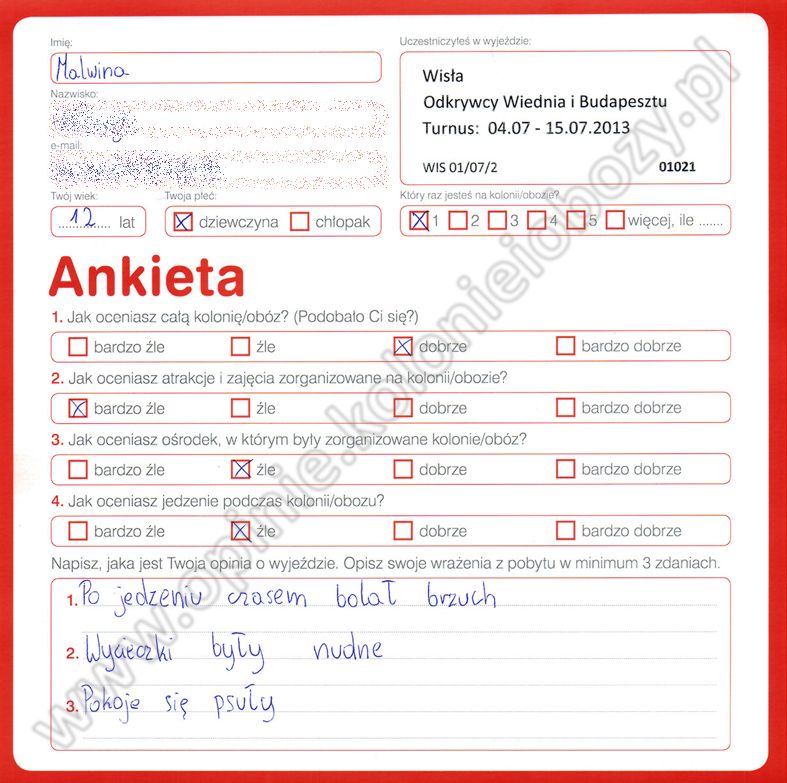 Imię:
Malwina
Nazwisko:
e-mail:
Twój wiek:
12 lat
Twoja płeć:
dziewczyna chłopak
Uczestniczyłeś w wyjeździe:
Wisła
Odkrywcy Wiednia i Budapesztu
Turnus: 04.07 - 15.07.2013
WIS 01/07/2 01021
Który raz jesteś na kolonii/obozie?
1 2 3 4 5 więcej, ile .......
Ankieta
1. Jak oceniasz całą kolonię/obóz? (Podobało Ci się?)
bardzo źle źle dobrze bardzo dobrze
2. Jak oceniasz atrakcje i zajęcia zorganizowane na kolonii/obozie?
bardzo źle źle dobrze bardzo dobrze
3. Jak oceniasz ośrodek, w którym były zorganizowane kolonie/obóz?
bardzo źle źle dobrze bardzo dobrze
4. Jak oceniasz jedzenie podczas kolonii/obozu?
bardzo źle źle dobrze bardzo dobrze
Napisz, jaka jest Twoja opinia o wyjeździe. Opisz swoje wrażenia z pobytu w minimum 3 zdaniach.
1. Po jedzeniu czasem bolał brzuch
2. Wycieczki były nudne
3. Pokoje się psuły
www.opinie.kolonieiobozy.pl